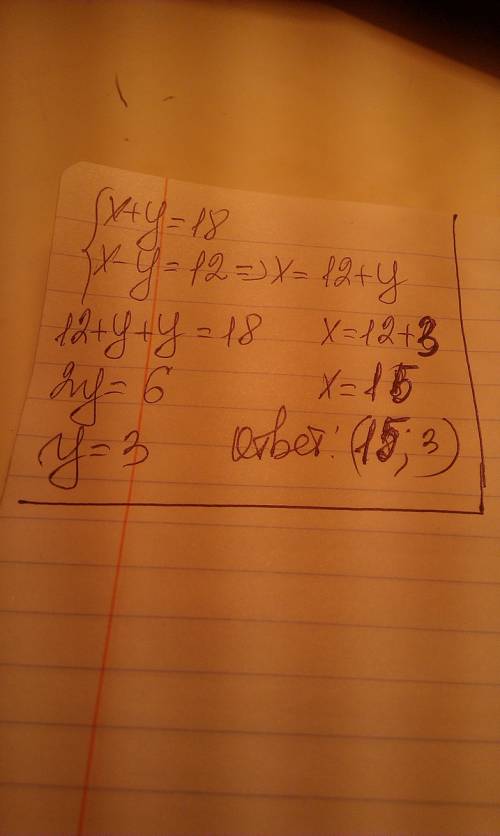 {x+y=18
{x-y=12=>x=12+y
12+y+y=18 x=12+3
2y=6 x=15
y=3 Ответ: (15; 3)